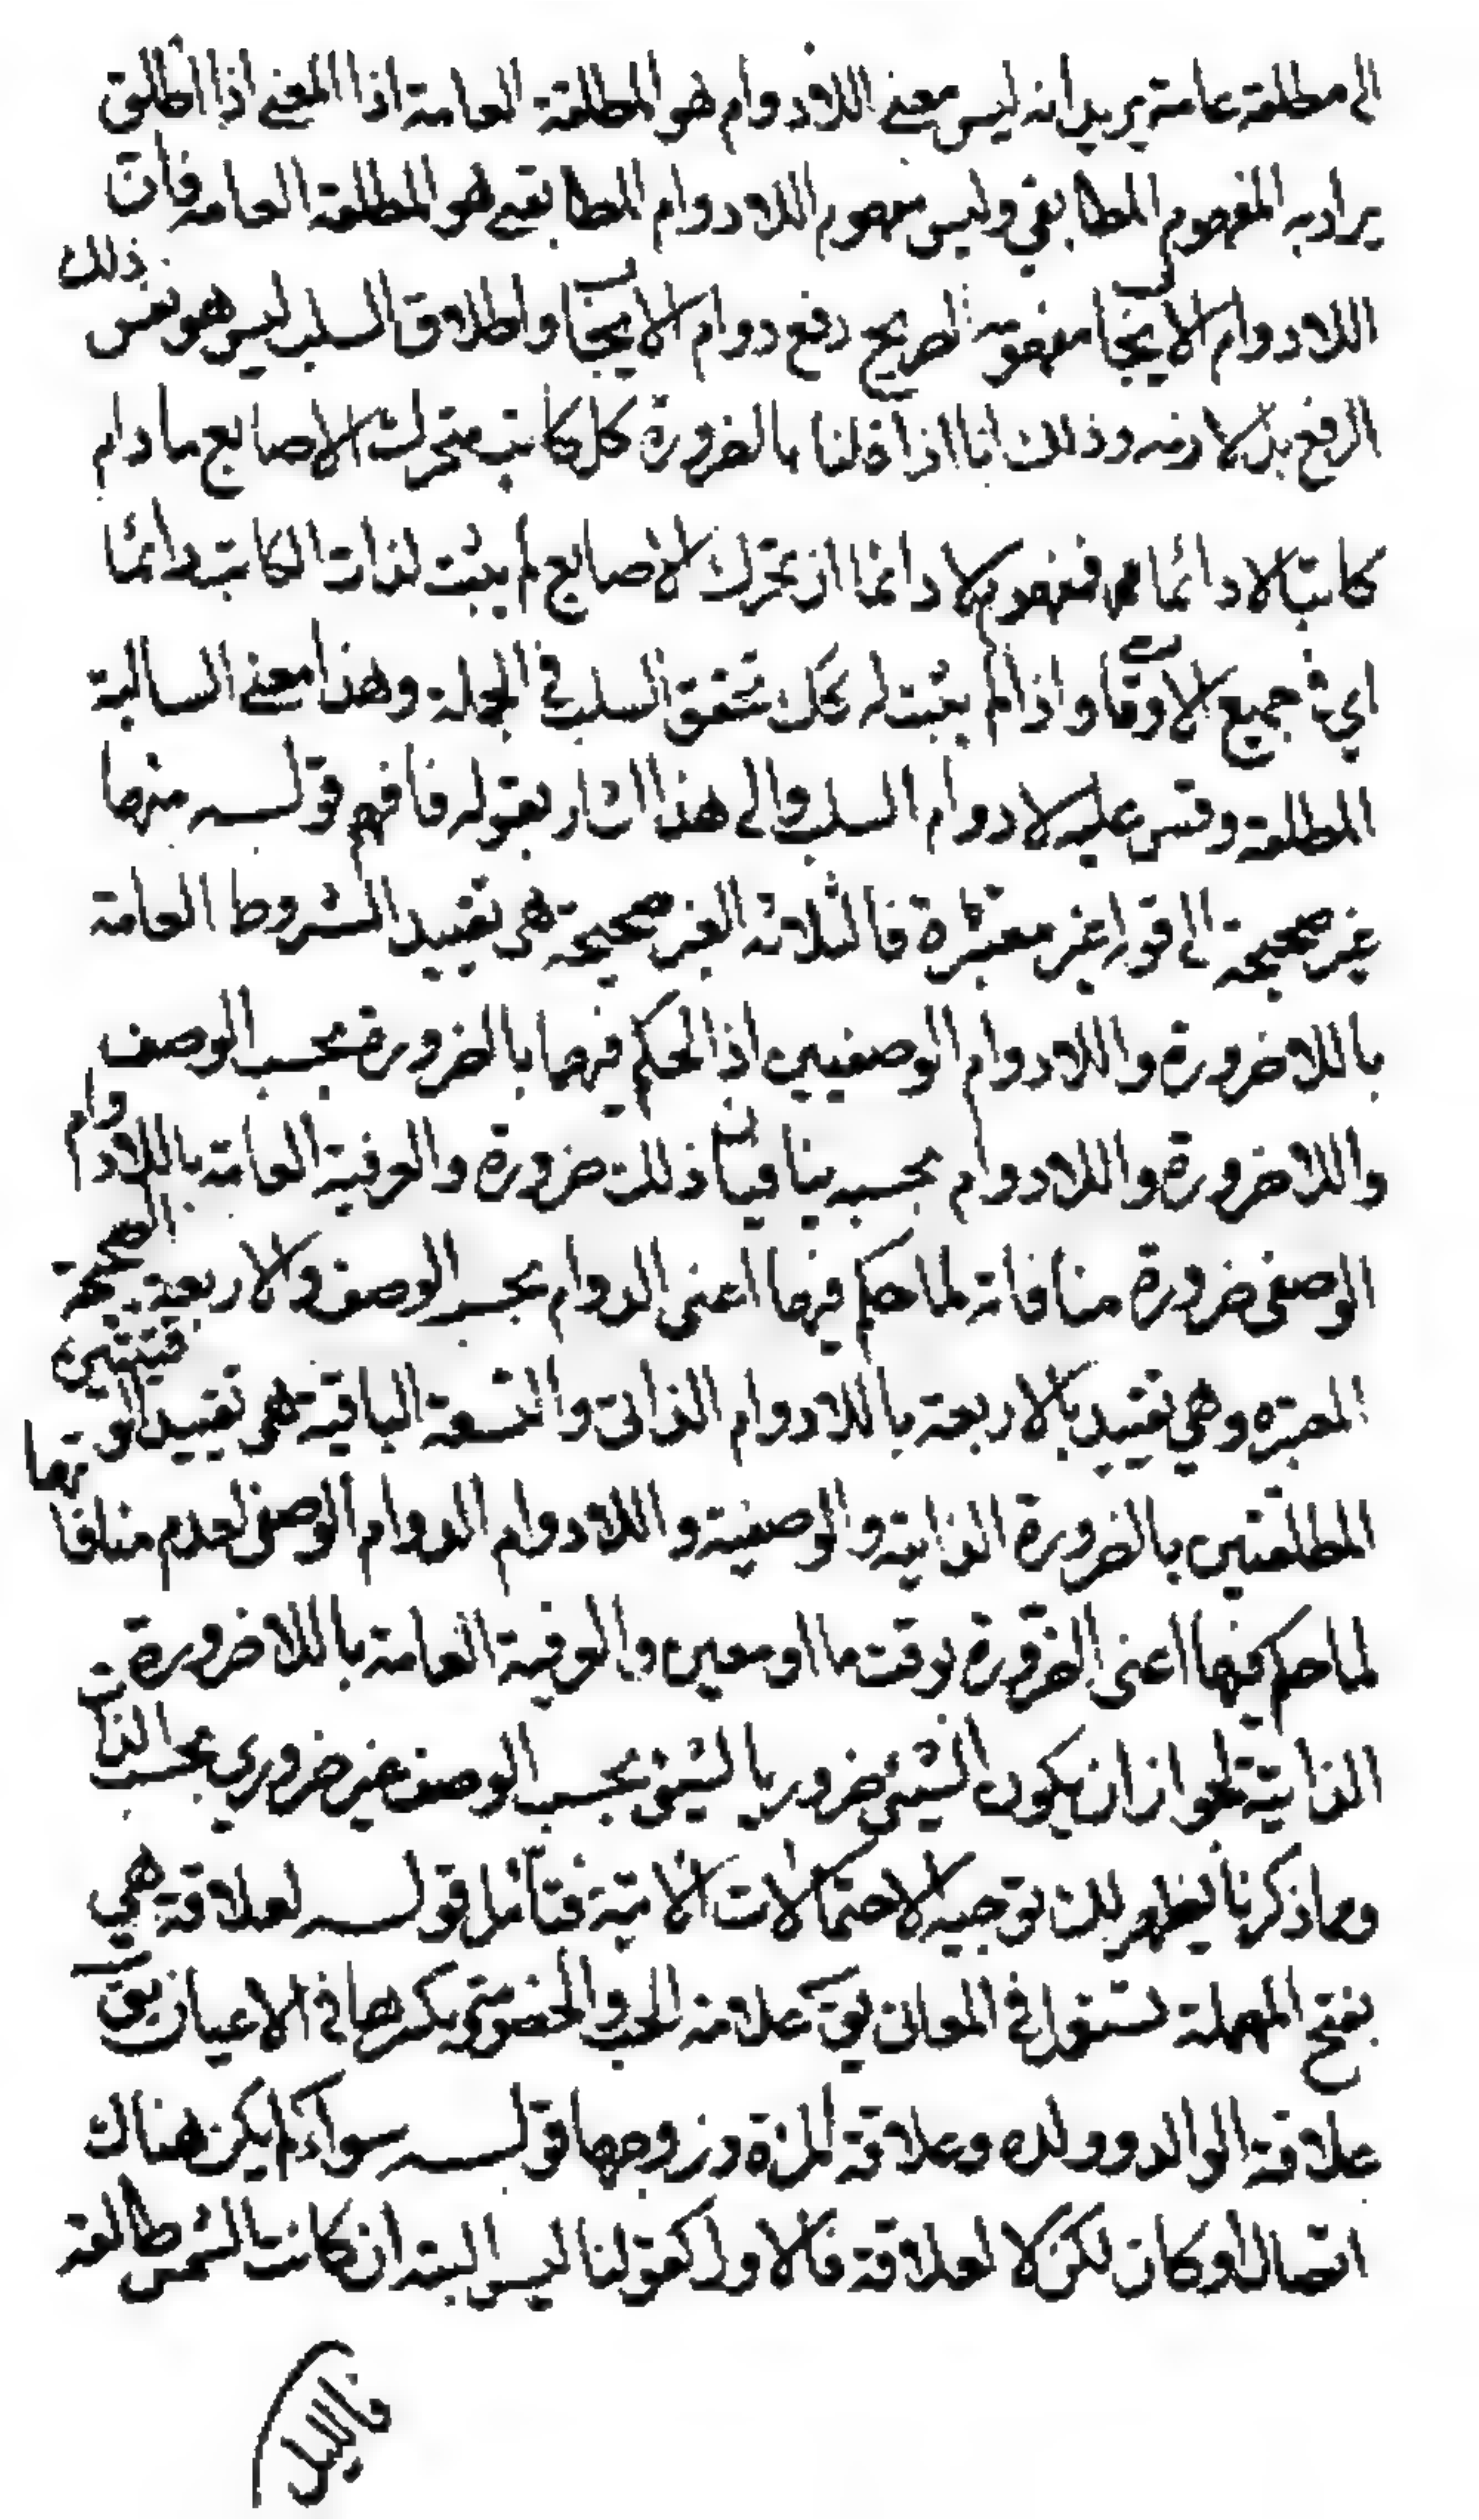 الى مطلقة عامة يريد انه ليس معنى اللادوام هو المطلقة العامة اذا المعنى اذا اطلق
يراد به المفهوم المطابقي وليس مفهوم اللادوام المطابقي هو المطلقة العامه فان
اللادوام الايجاب مفهومه الصريح رفع دوام الايجاب واطلاق السلب ليس هو نفس ذلك
الرفع بل لازمه وذلك انا اذا قلنا بالضرورة كل كاتب متحرك الاصابع ما دام
كاتبا لا دائما فمفهوم لا دائما ان تحرك الاصابع لم يثبت لذات الكاتب دائما
اي في جميع الاوقات واذا لم يثبت له كل تحقق السلب في الجملة وهذا معنى السالبة
المطلقة وقس عليه لادوام السلب والى هذا اشار بقوله فافهم قولـــه منها
غير صحيحة الى قوله غير معتبرة فالثلاثة الغير صحيحة هي تقييد المشروط العامة
باللاضرورة واللادوام الوصفيين اذ الحكم فيهما بالضرورة بحسب الوصف
واللاضرورة واللادوام بحسبه ينافيان ذلك ضرورة والعرفية العامة باللادوام
الوصفي ضرورة منافاته لما حكم فيها اعنى الدوام بحسب الوصف والاربعة الصحيحة
المعتبره وهي تقييد الاربعة باللادوام الذاتي والتسعة الباقية هي تقييد الوقتيتين
المطلقتين بالضرورة الذاتية والوصفية واللادوام الدوام الوصفي لعدم منافاتها
لما حكم فيها اعنى الضرورة بوقت ما او معين والعرفية العامة باللاضرورة
الذاتية لجواز ان يكون الشيئ ضروريا لشيئ بحسب الوصف غير ضروري بحسب الذات
ومما ذكرنا يظهر لك توجيه الاحتمالات الآتية فتأمل قولـــه لعلاقة هي
بفتح المهملة تستعمل في المعاني يق علاقة الحب والخصومة وبكسرها في الاعيان يق
علاقة الوالد وولده وعلاقة المرٔة وزوجها قولـــه سواء لم يكن هناك
اتصال او كان لكن لا لعلاقة فالاول كقولنا ليس البتة ان كانت الشمس طالعة
فالليل